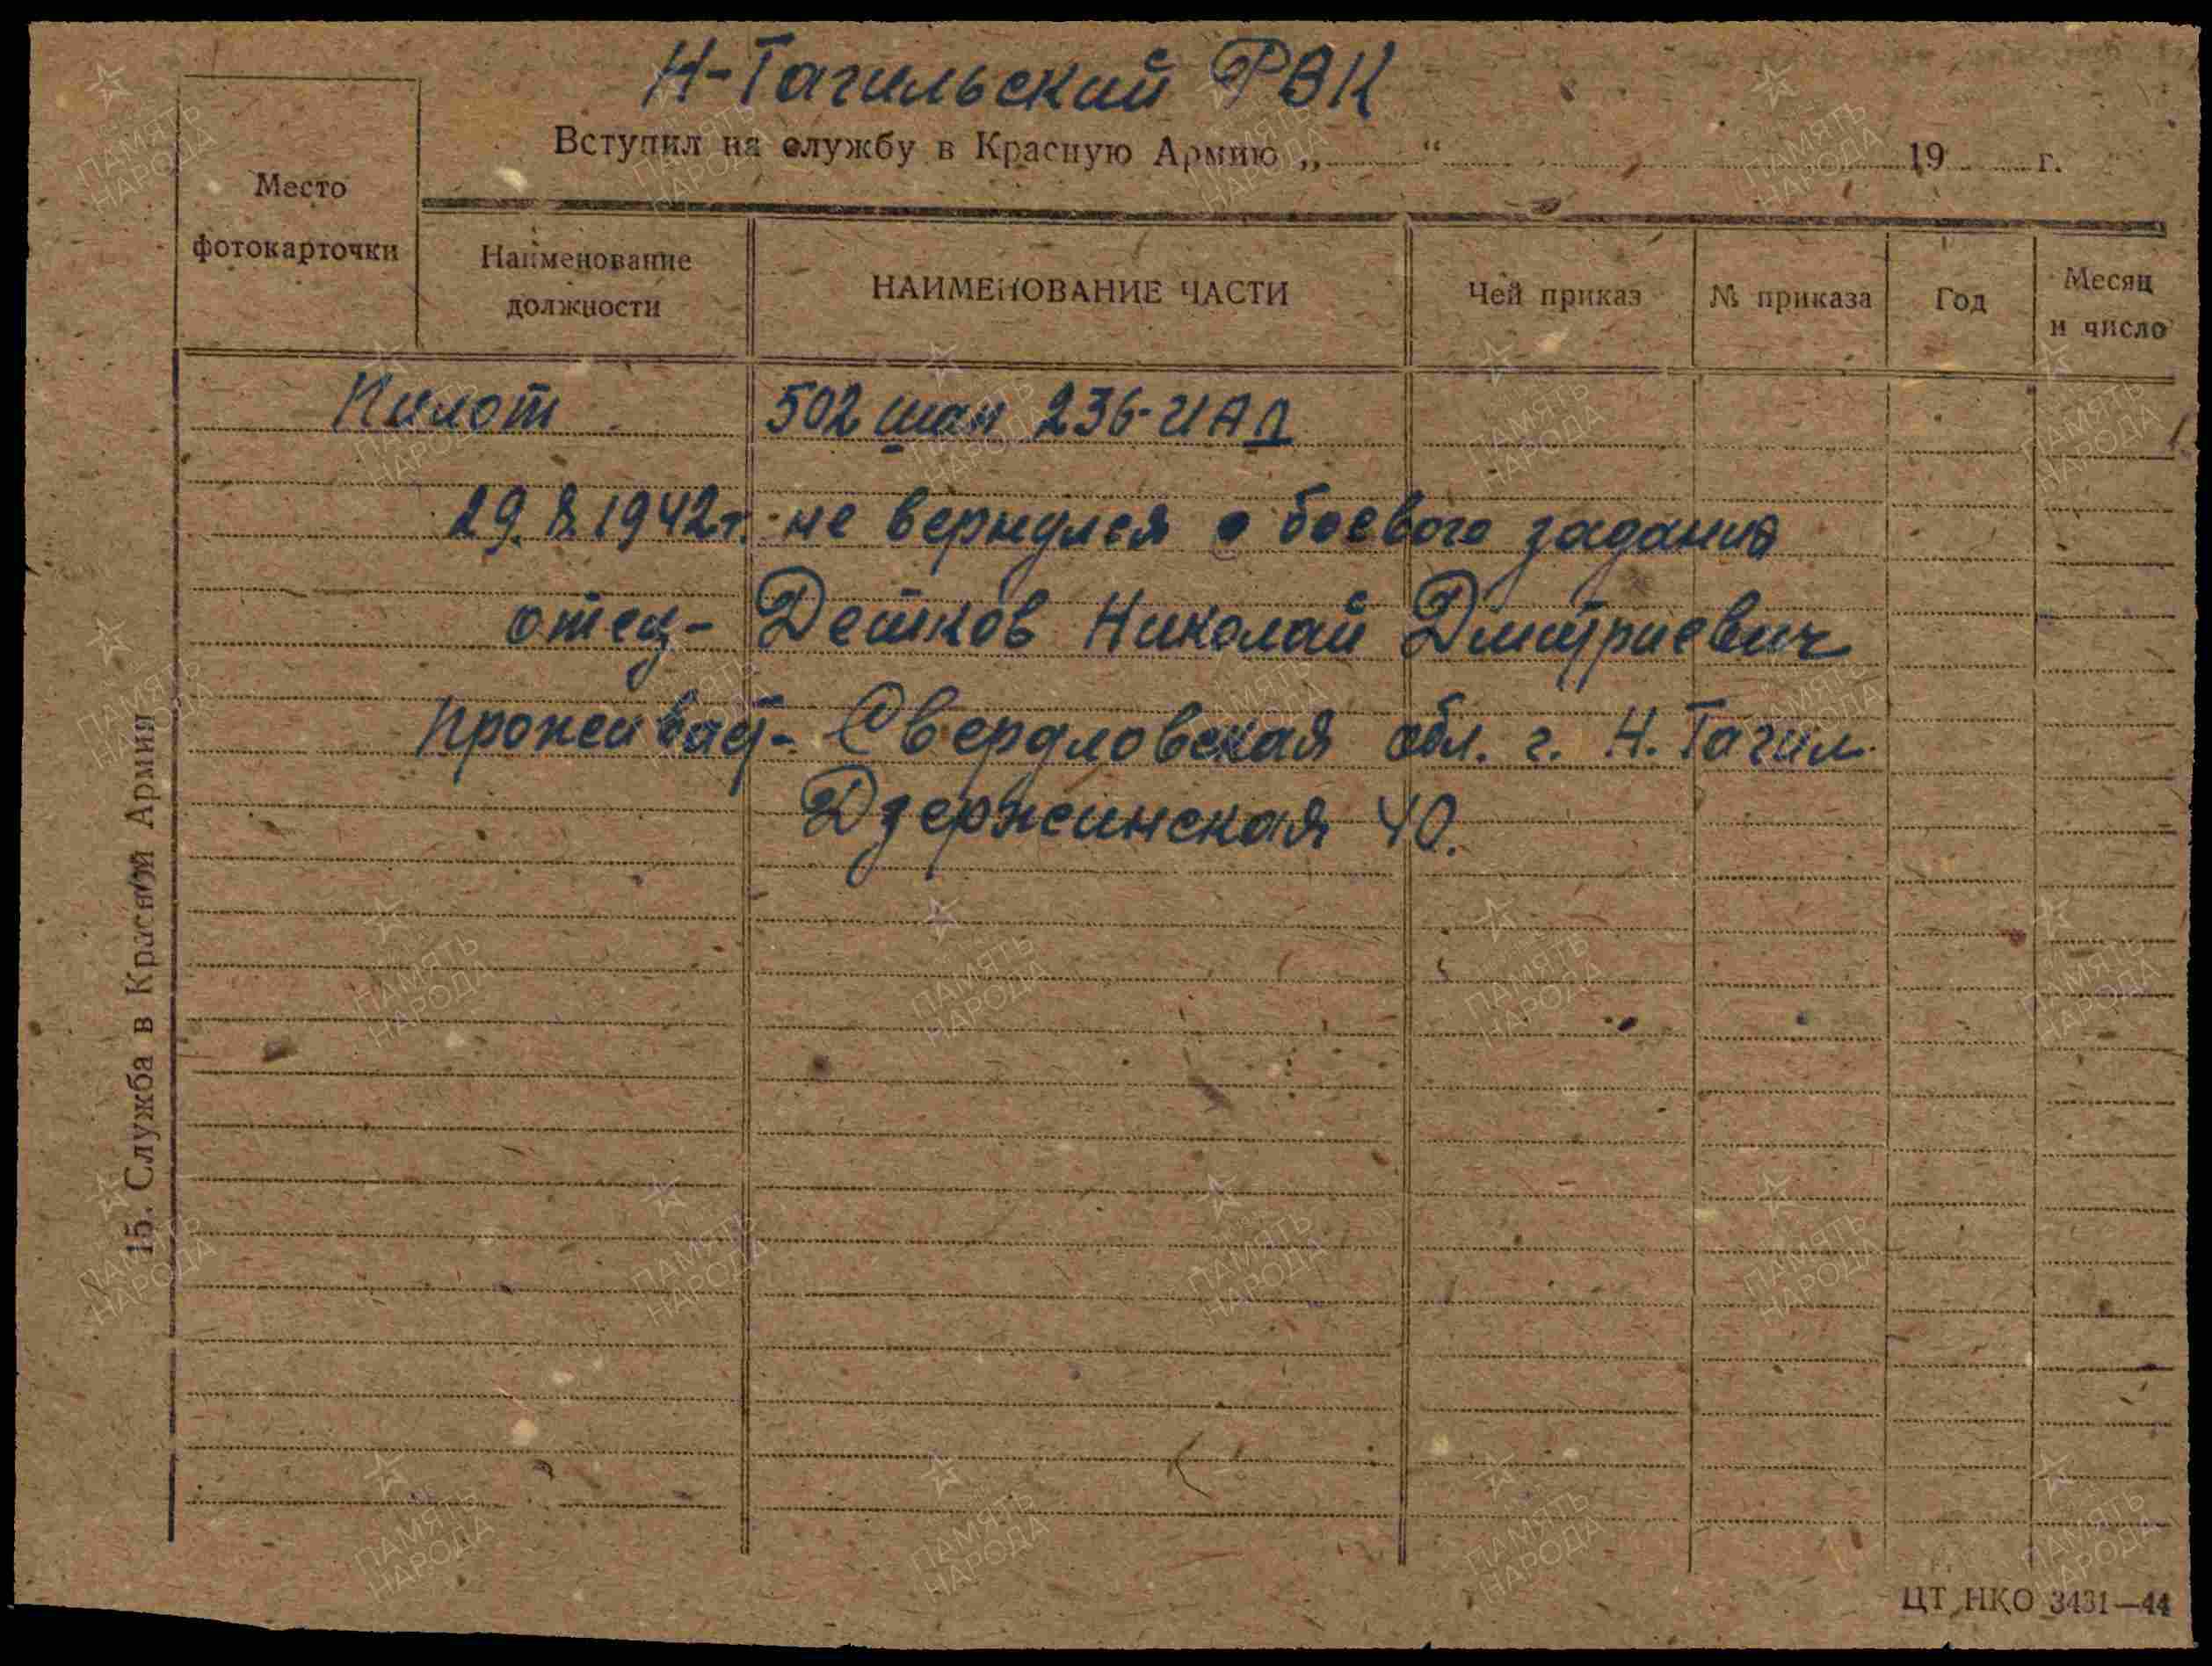 Н-Тагильский РВК
Вступил на службу в Красную Армию „ “ 19 г.
Место фотокарточки
Наименование должности
НАИМЕНОВАНИЕ ЧАСТИ
Чей приказ
№ приказа
Год
Месяц и число
Пилот 502 шап 236-ИАД
29.8.1942г. не вернулся с боевого задания
отец- Детков Николай Дмитриевич
проживает- Свердловская обл. г. Н. Тагил
Дзержинская 40.
15. Служба в Красной Армии
ЦТ НКО 3431—44
ПАМЯТЬ НАРОДА